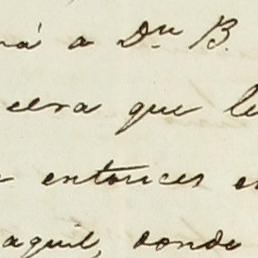 rá a Dn B.
cera que le
entonces e
aquil, donde